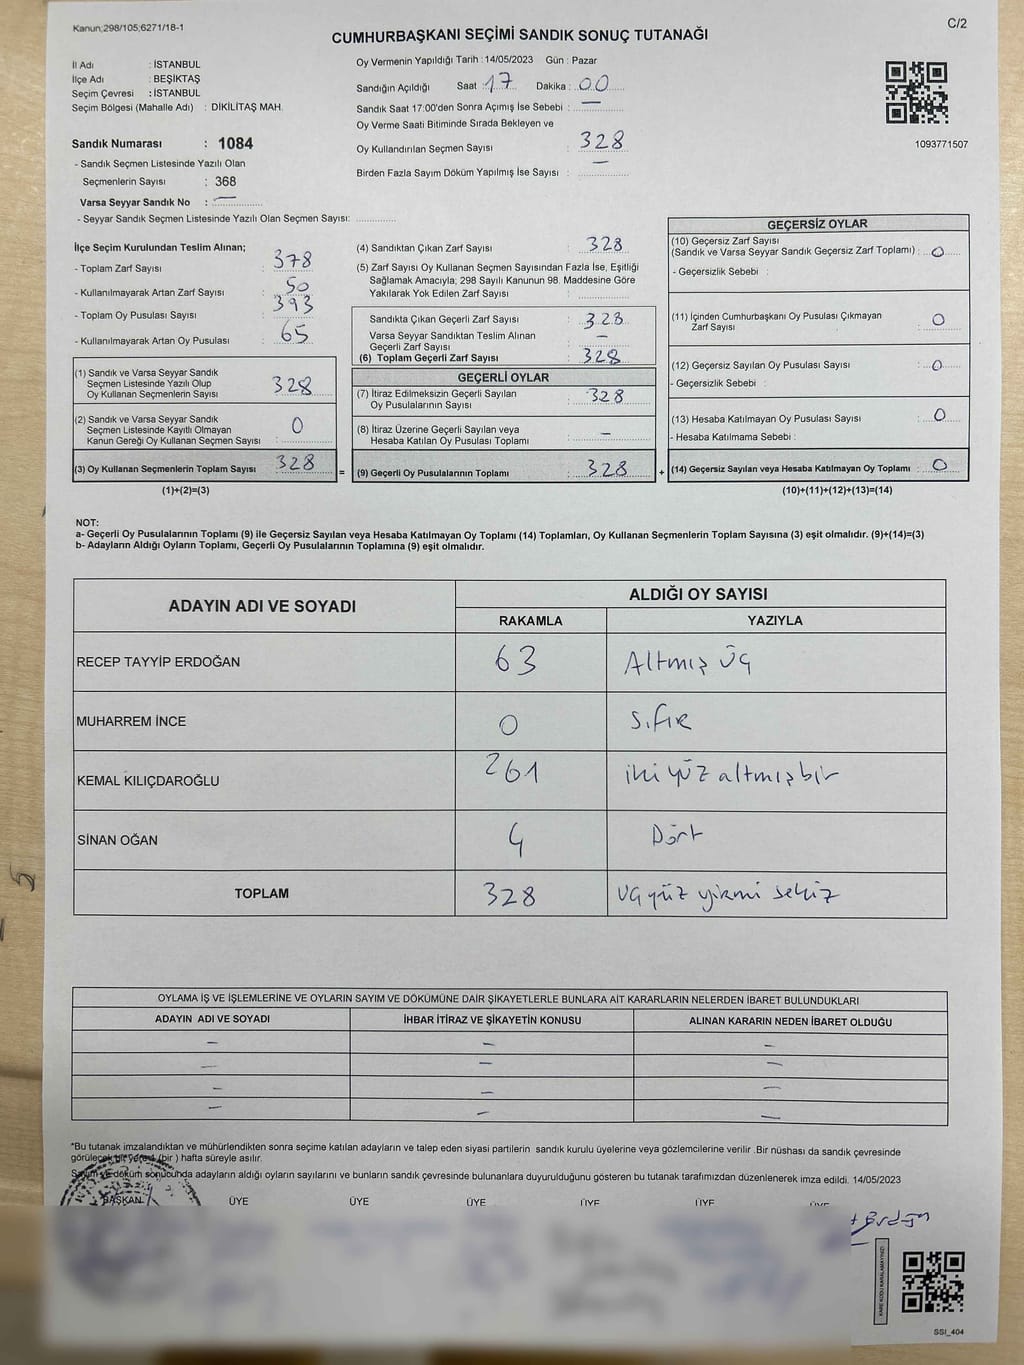 Kanun;298/105;6271/18-1
C/2
CUMHURBAŞKANI SEÇİMİ SANDIK SONUÇ TUTANAĞI
İl Adı : İSTANBUL
İlçe Adı : BEŞİKTAŞ
Seçim Çevresi : İSTANBUL
Seçim Bölgesi (Mahalle Adı) : DİKİLİTAŞ MAH.
Sandık Numarası : 1084
- Sandık Seçmen Listesinde Yazılı Olan
Seçmenlerin Sayısı : 368
Varsa Seyyar Sandık No : —
- Seyyar Sandık Seçmen Listesinde Yazılı Olan Seçmen Sayısı: ..............
Oy Vermenin Yapıldığı Tarih : 14/05/2023 Gün : Pazar
Sandığın Açıldığı Saat : 17 Dakika : 00
Sandık Saat 17:00'den Sonra Açımış İse Sebebi : —
Oy Verme Saati Bitiminde Sırada Bekleyen ve
Oy Kullandırılan Seçmen Sayısı : 328
Birden Fazla Sayım Döküm Yapılmış İse Sayısı : —
1093771507
İlçe Seçim Kurulundan Teslim Alınan;
- Toplam Zarf Sayısı : 378
- Kullanılmayarak Artan Zarf Sayısı : 50
- Toplam Oy Pusulası Sayısı : 393
- Kullanılmayarak Artan Oy Pusulası : 65
(1) Sandık ve Varsa Seyyar Sandık
Seçmen Listesinde Yazılı Olup
Oy Kullanan Seçmenlerin Sayısı : 328
(2) Sandık ve Varsa Seyyar Sandık
Seçmen Listesinde Kayıtlı Olmayan
Kanun Gereği Oy Kullanan Seçmen Sayısı : 0
(3) Oy Kullanan Seçmenlerin Toplam Sayısı : 328
(1)+(2)=(3)
(4) Sandıktan Çıkan Zarf Sayısı : 328
(5) Zarf Sayısı Oy Kullanan Seçmen Sayısından Fazla İse, Eşitliği
Sağlamak Amacıyla; 298 Sayılı Kanunun 98. Maddesine Göre
Yakılarak Yok Edilen Zarf Sayısı :
Sandıkta Çıkan Geçerli Zarf Sayısı : 328
Varsa Seyyar Sandıktan Teslim Alınan
Geçerli Zarf Sayısı : —
(6) Toplam Geçerli Zarf Sayısı : 328
GEÇERLİ OYLAR
(7) İtiraz Edilmeksizin Geçerli Sayılan
Oy Pusulalarının Sayısı : 328
(8) İtiraz Üzerine Geçerli Sayılan veya
Hesaba Katılan Oy Pusulası Toplamı : —
= (9) Geçerli Oy Pusulalarının Toplamı : 328
GEÇERSİZ OYLAR
(10) Geçersiz Zarf Sayısı
(Sandık ve Varsa Seyyar Sandık Geçersiz Zarf Toplamı) : 0
- Geçersizlik Sebebi :
(11) İçinden Cumhurbaşkanı Oy Pusulası Çıkmayan
Zarf Sayısı : 0
(12) Geçersiz Sayılan Oy Pusulası Sayısı : 0
- Geçersizlik Sebebi :
(13) Hesaba Katılmayan Oy Pusulası Sayısı : 0
- Hesaba Katılmama Sebebi :
+ (14) Geçersiz Sayılan veya Hesaba Katılmayan Oy Toplamı : 0
(10)+(11)+(12)+(13)=(14)
NOT:
a- Geçerli Oy Pusulalarının Toplamı (9) ile Geçersiz Sayılan veya Hesaba Katılmayan Oy Toplamı (14) Toplamları, Oy Kullanan Seçmenlerin Toplam Sayısına (3) eşit olmalıdır. (9)+(14)=(3)
b- Adayların Aldığı Oyların Toplamı, Geçerli Oy Pusulalarının Toplamına (9) eşit olmalıdır.
ADAYIN ADI VE SOYADI
ALDIĞI OY SAYISI
RAKAMLA YAZIYLA
RECEP TAYYİP ERDOĞAN 63 Altmış Üç
MUHARREM İNCE 0 Sıfır
KEMAL KILIÇDAROĞLU 261 iki yüz altmış bir
SİNAN OĞAN 4 Dört
TOPLAM 328 Üç yüz yirmi sekiz
OYLAMA İŞ VE İŞLEMLERİNE VE OYLARIN SAYIM VE DÖKÜMÜNE DAİR ŞİKAYETLERLE BUNLARA AİT KARARLARIN NELERDEN İBARET BULUNDUKLARI
ADAYIN ADI VE SOYADI İHBAR İTİRAZ VE ŞİKAYETİN KONUSU ALINAN KARARIN NEDEN İBARET OLDUĞU
— — —
— — —
— — —
— — —
*Bu tutanak imzalandıktan ve mühürlendikten sonra seçime katılan adayların ve talep eden siyasi partilerin sandık kurulu üyelerine veya gözlemcilerine verilir .Bir nüshası da sandık çevresinde
görülecek bir yere 1 (bir ) hafta süreyle asılır.
Sayım ve döküm sonucunda adayların aldığı oyların sayılarını ve bunların sandık çevresinde bulunanlara duyurulduğunu gösteren bu tutanak tarafımızdan düzenlenerek imza edildi. 14/05/2023
BAŞKAN ÜYE ÜYE ÜYE ÜYE ÜYE ÜYE
KARE KODU KARALAMAYINIZ!
SSI_404